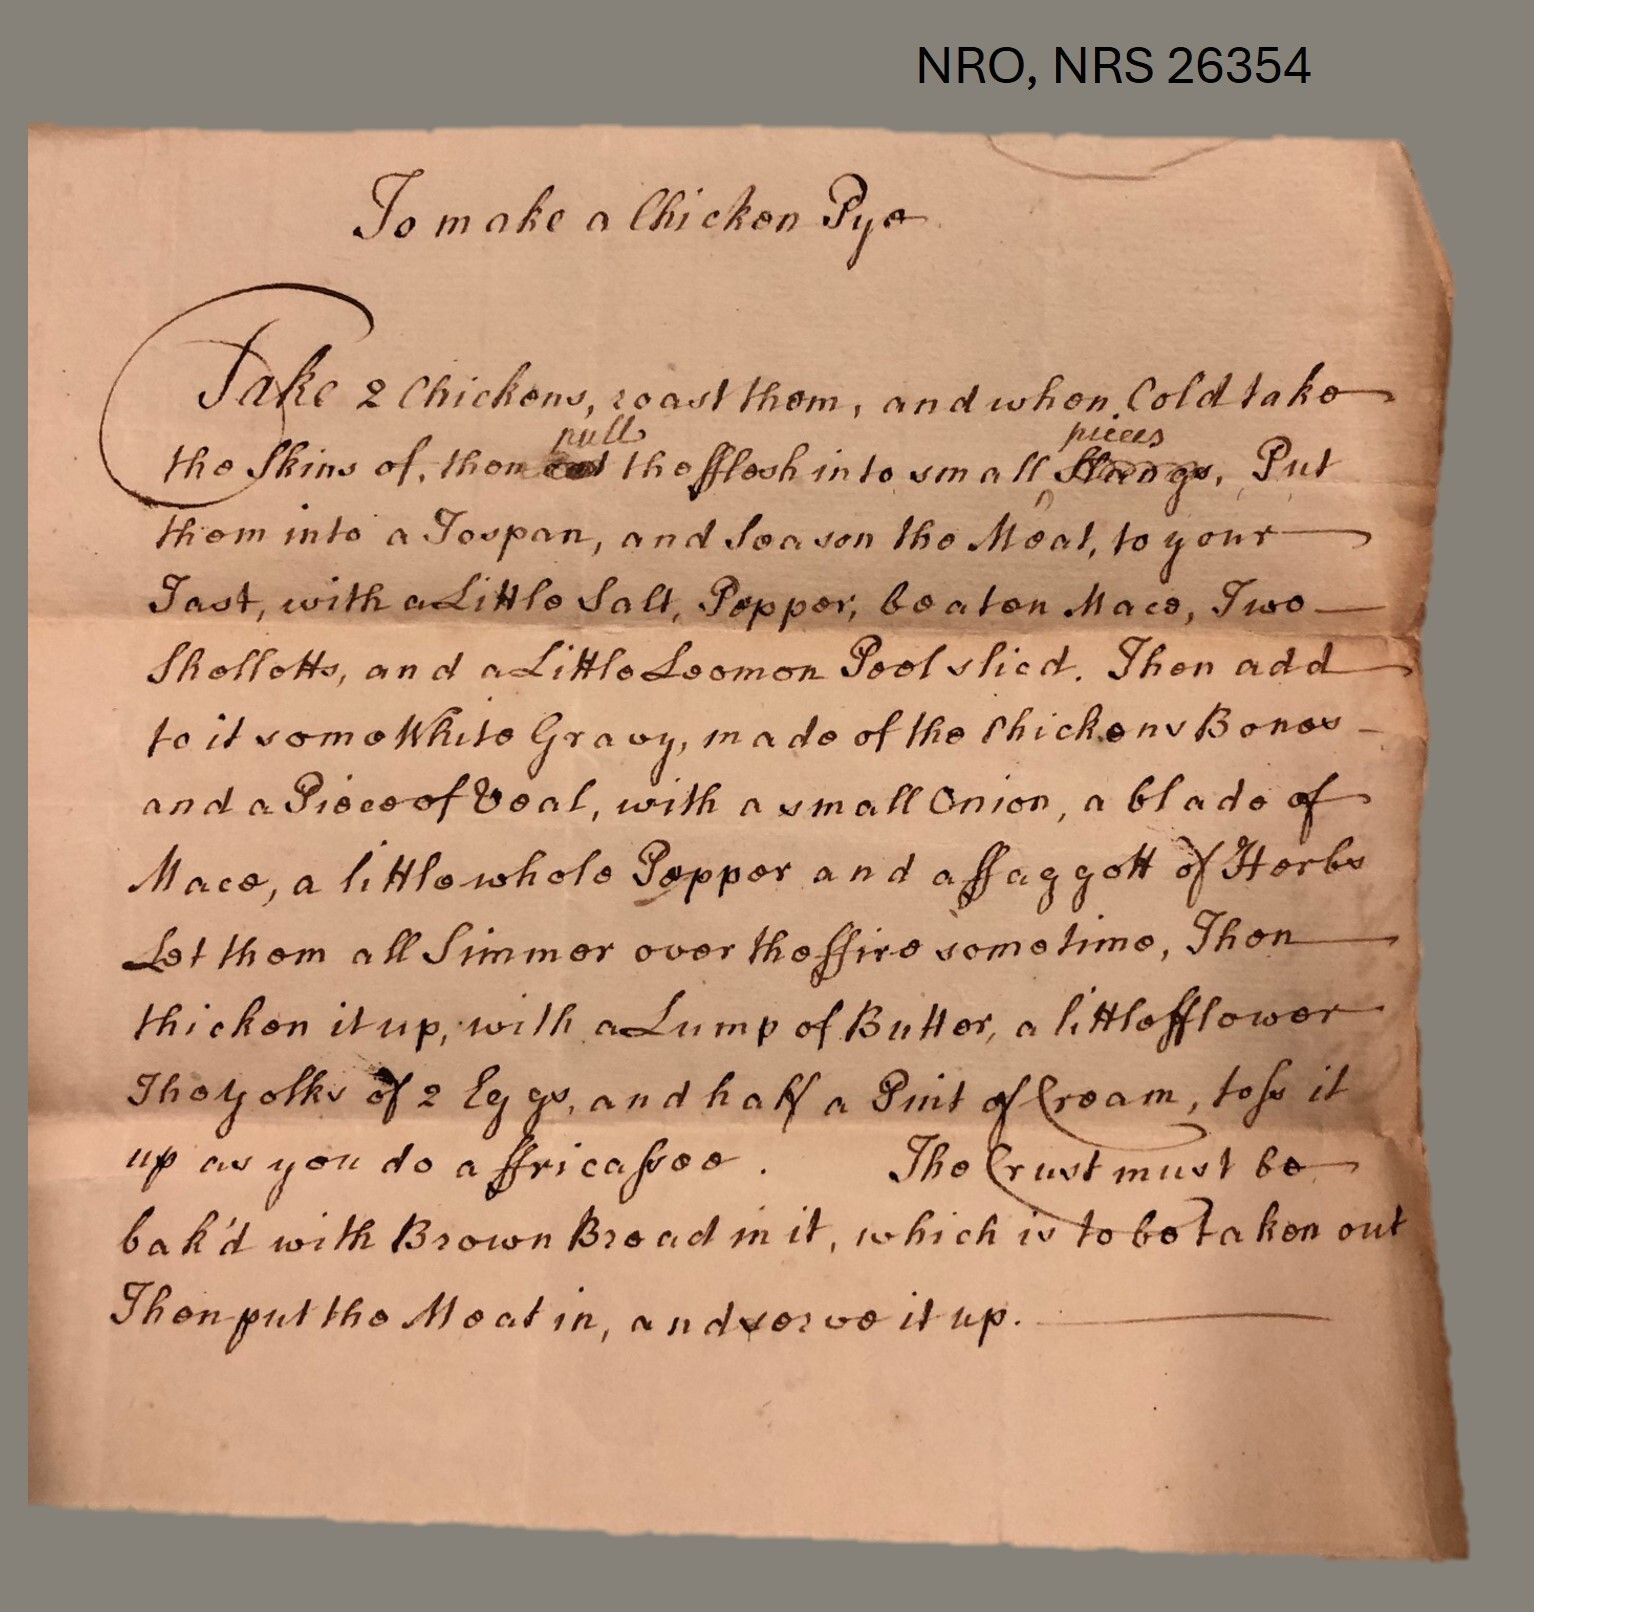 NRO, NRS 26354
To make a Chicken Pye
Take 2 Chickens, roast them, and when Cold take
pull pieces
the Skins of, then cut the fflesh into small Strangs, Put
them into a Tospan, and Season the Meat, to your
Tast, with a Little Salt, Pepper, beaten Mace, Two
Shellotts, and a Little Leomon Peel slicd. Then add
to it some White Gravy, made of the Chickens Bones
and a Piece of Veal, with a small Onion, a blade of
Mace, a little whole Pepper and a ffaggott of Herbs
Let them all Simmer over the ffire some time, Then
thicken it up, with a Lump of Butter, a little fflower
The yolks of 2 Eggs, and half a Pint of Cream, toss it
up as you do a ffricassee. The Crust must be
bak'd with Brown Bread in it, which is to be taken out
Then put the Meat in, and serve it up.